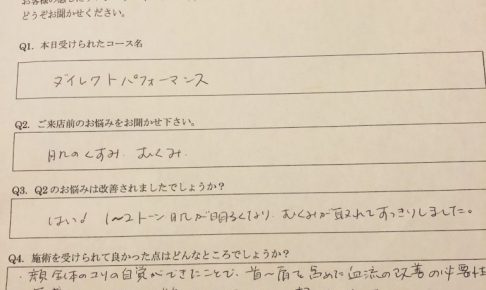 どうぞお聞かせください。
Q1. 本日受けられたコース名
ダイレクトパフォーマンス
Q2. ご来店前のお悩みをお聞かせ下さい。
肌のくすみ. むくみ.
Q3. Q2のお悩みは改善されましたでしょうか？
はい♩ 1〜2トーン肌が明るくなり、むくみが取れてすっきりしました。
Q4. 施術を受けられて良かった点はどんなところでしょうか？
・顔全体のコリの自覚ができたことで、首〜肩も含めた血流の改善の必要性